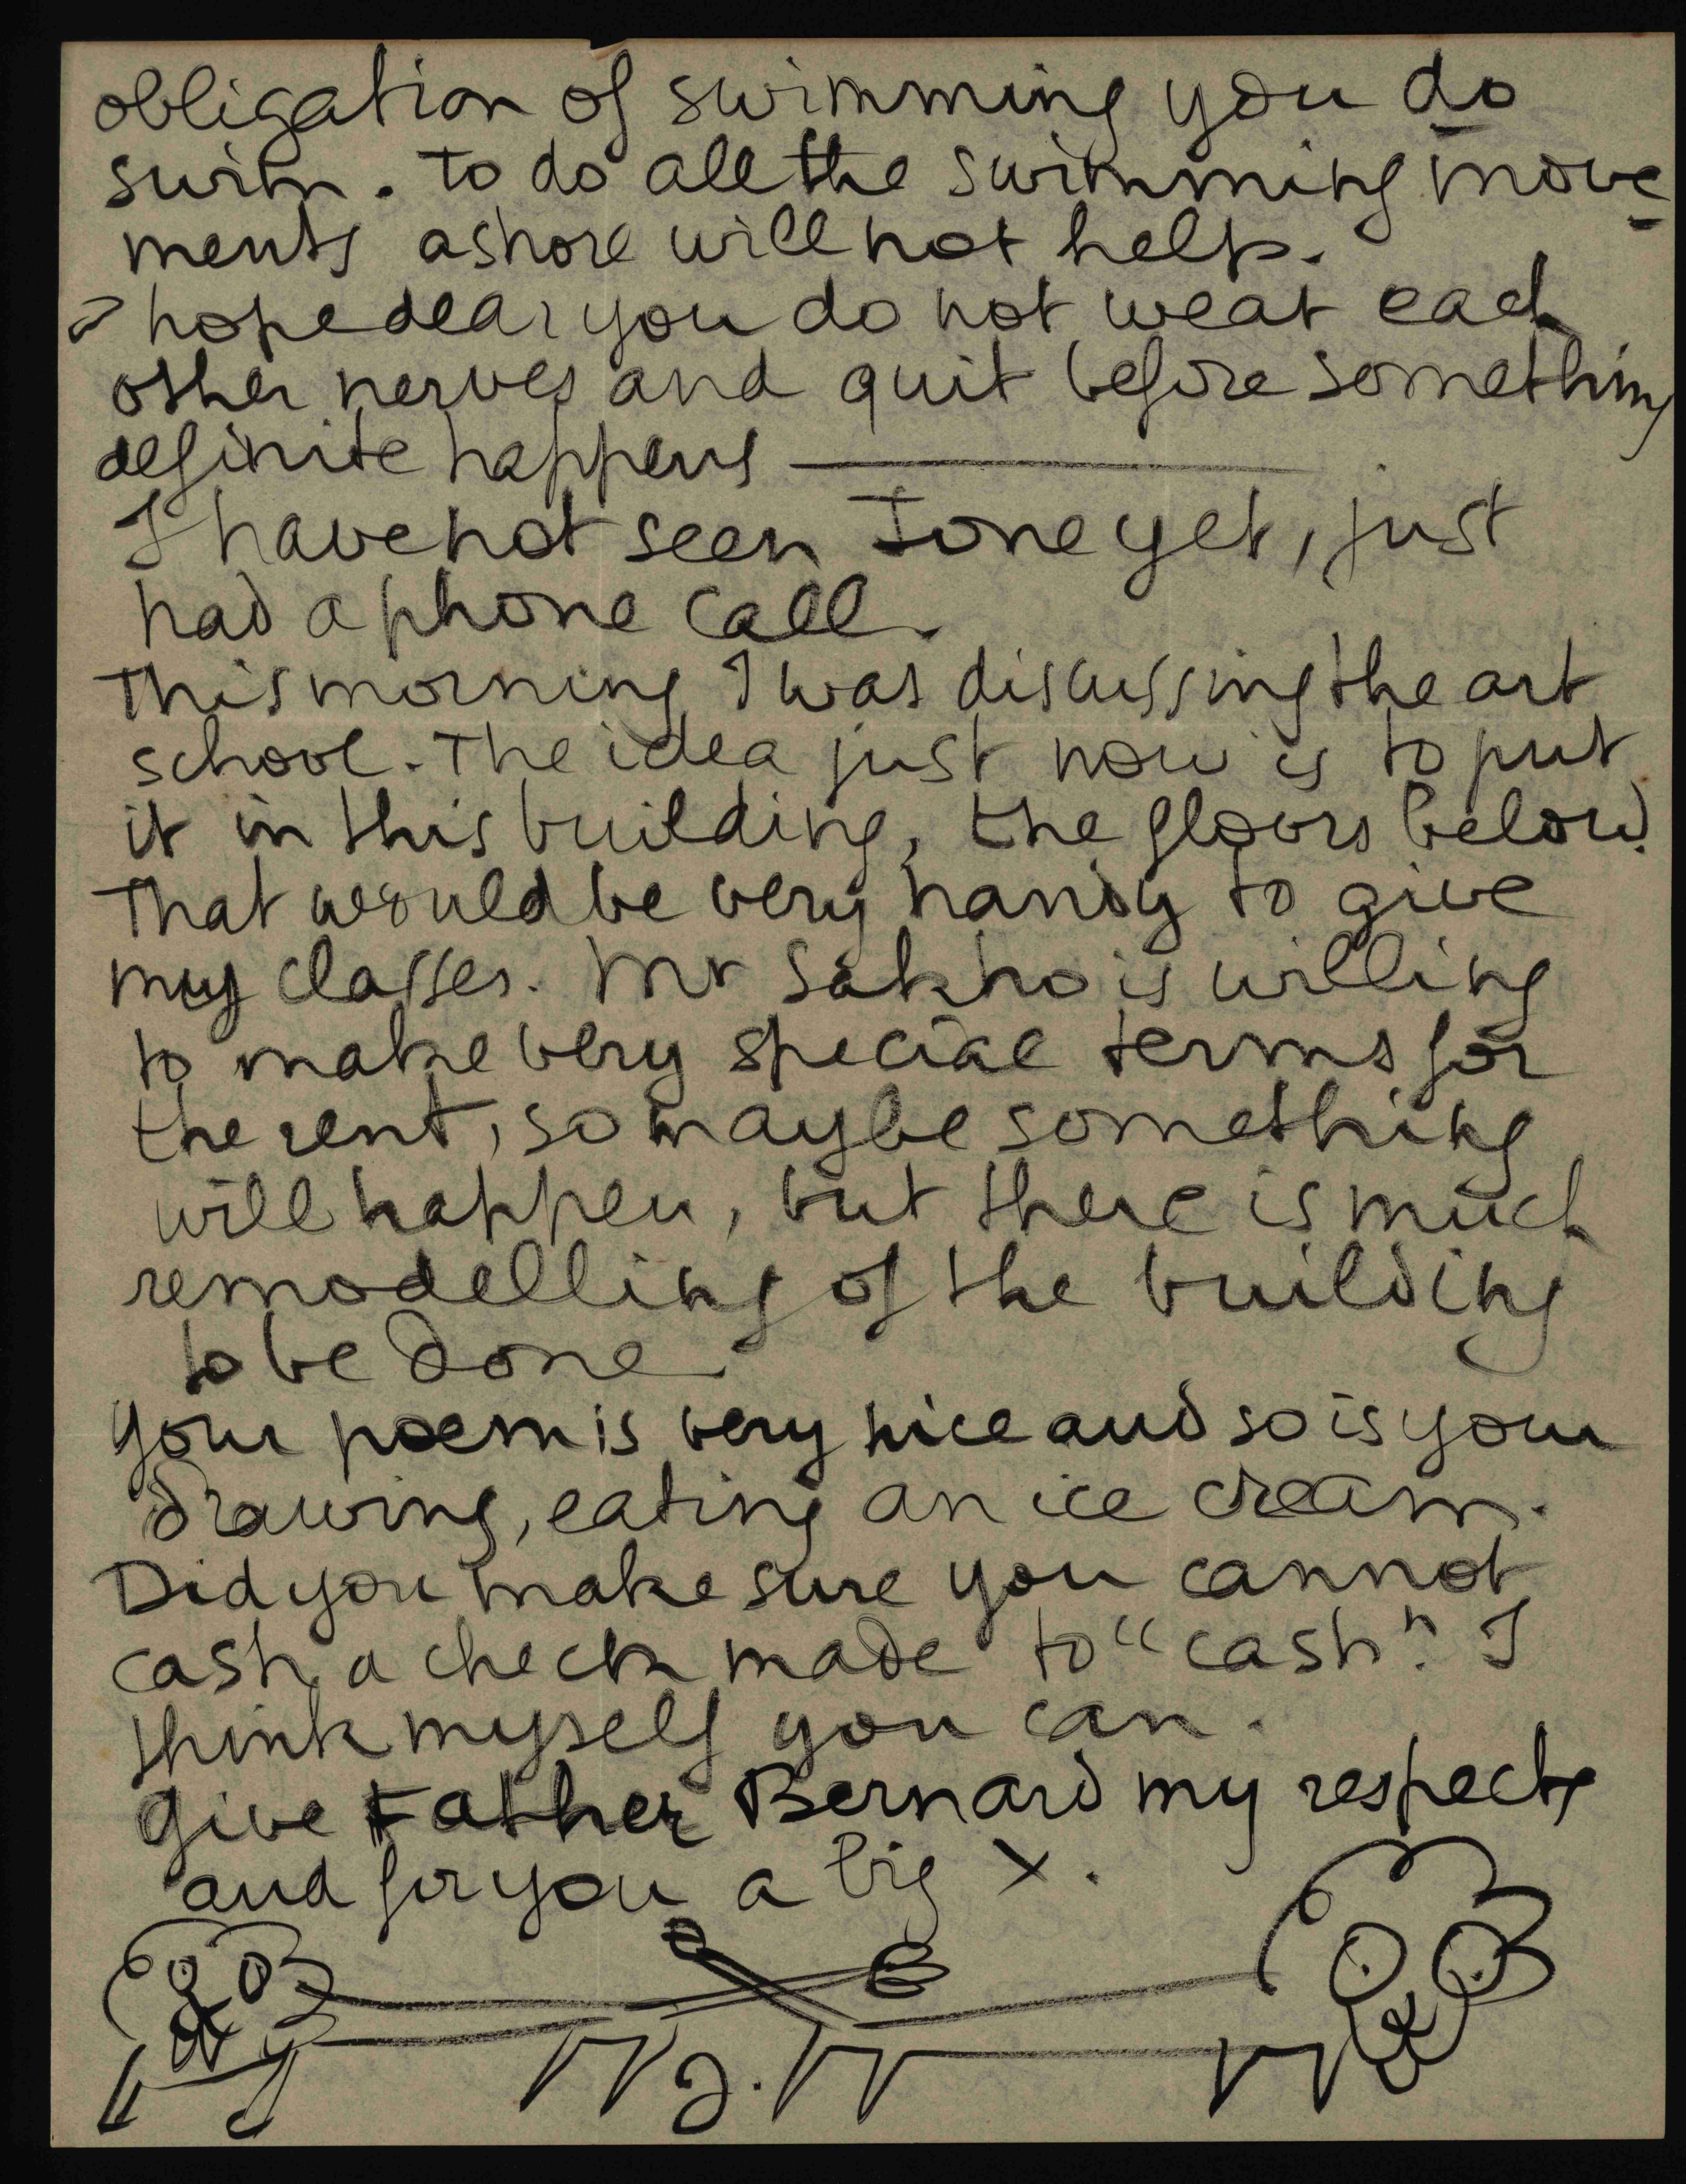 obligation of swimming you do
swim. to do all the swimming move
ments ashore will not help.
I hope dear you do not wear each
other nerves and quit before something
definite happens —
I have not seen Ione yet, just
had a phone call.
This morning I was discussing the art
school. The idea just now is to put
it in this building, the floors below.
That would be very handy to give
my classes. Mr Sakho is willing
to make very special terms for
the rent, so maybe something
will happen, but there is much
remodelling of the building
to be done
your poem is very nice and so is your
drawing, eating an ice cream.
Did you make sure you cannot
cash a check made to "cash". I
think myself you can.
Give Father Bernard my respects
and for you a big X.
J.